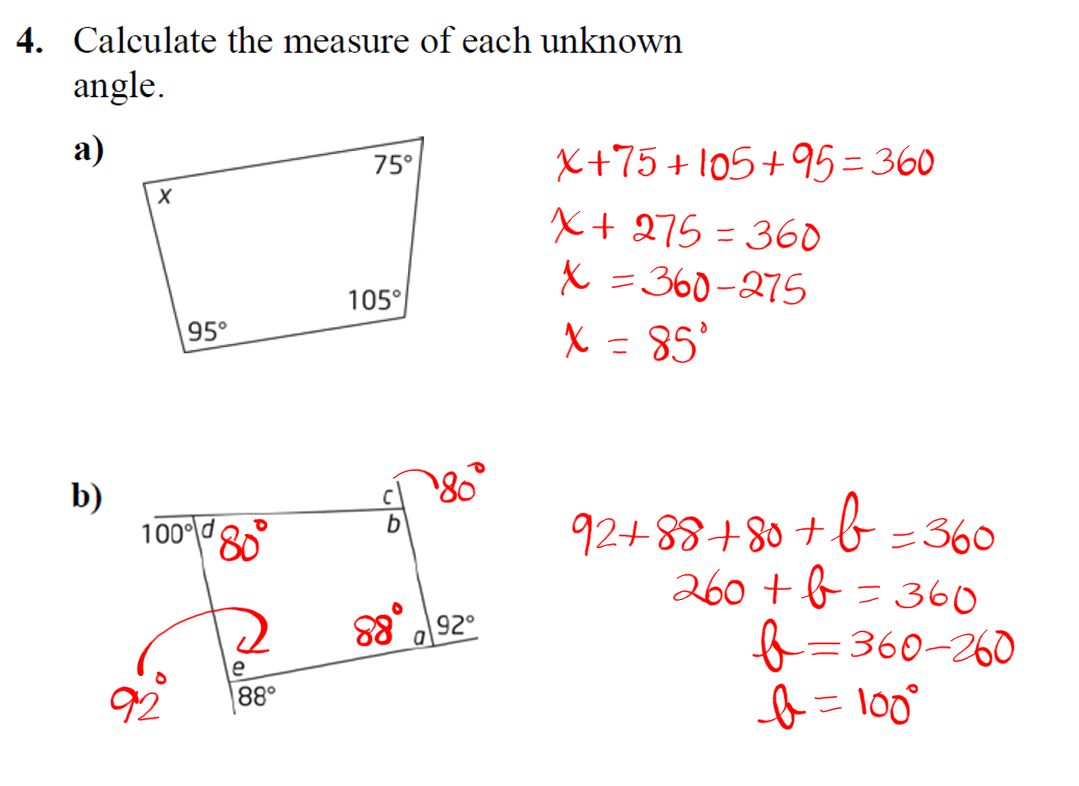 4. Calculate the measure of each unknown
angle.
a)
75°
x
105°
95°
x+75+105+95=360
x+ 275 = 360
x =360-275
x = 85°
b)
c 80°
100° d 80°
b
88° a 92°
e
92°
88°
92+88+80+b=360
260+b=360
b=360-260
b=100°